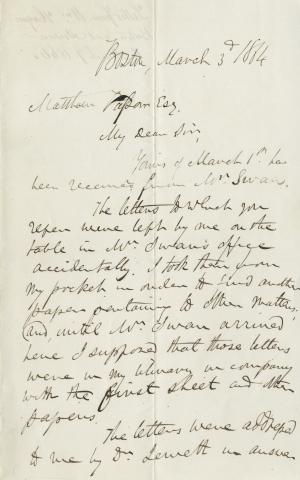 Boston, March 3d, 1864
Matthew Esq.
My dear Sir,
Yours of March 1st. has
been received from Mr. Swan.
The letters to which you
refer were left by me on the
table in Mr. Swan's office
accidentally. I took them from
my pocket in order to find another
paper containing to other matters,
and, until Mr. Swan arrived
here I supposed that those letters
were in my in company
with the first sheet and other
papers.
The letters were addressed
to me by Dr. Jewett in answer